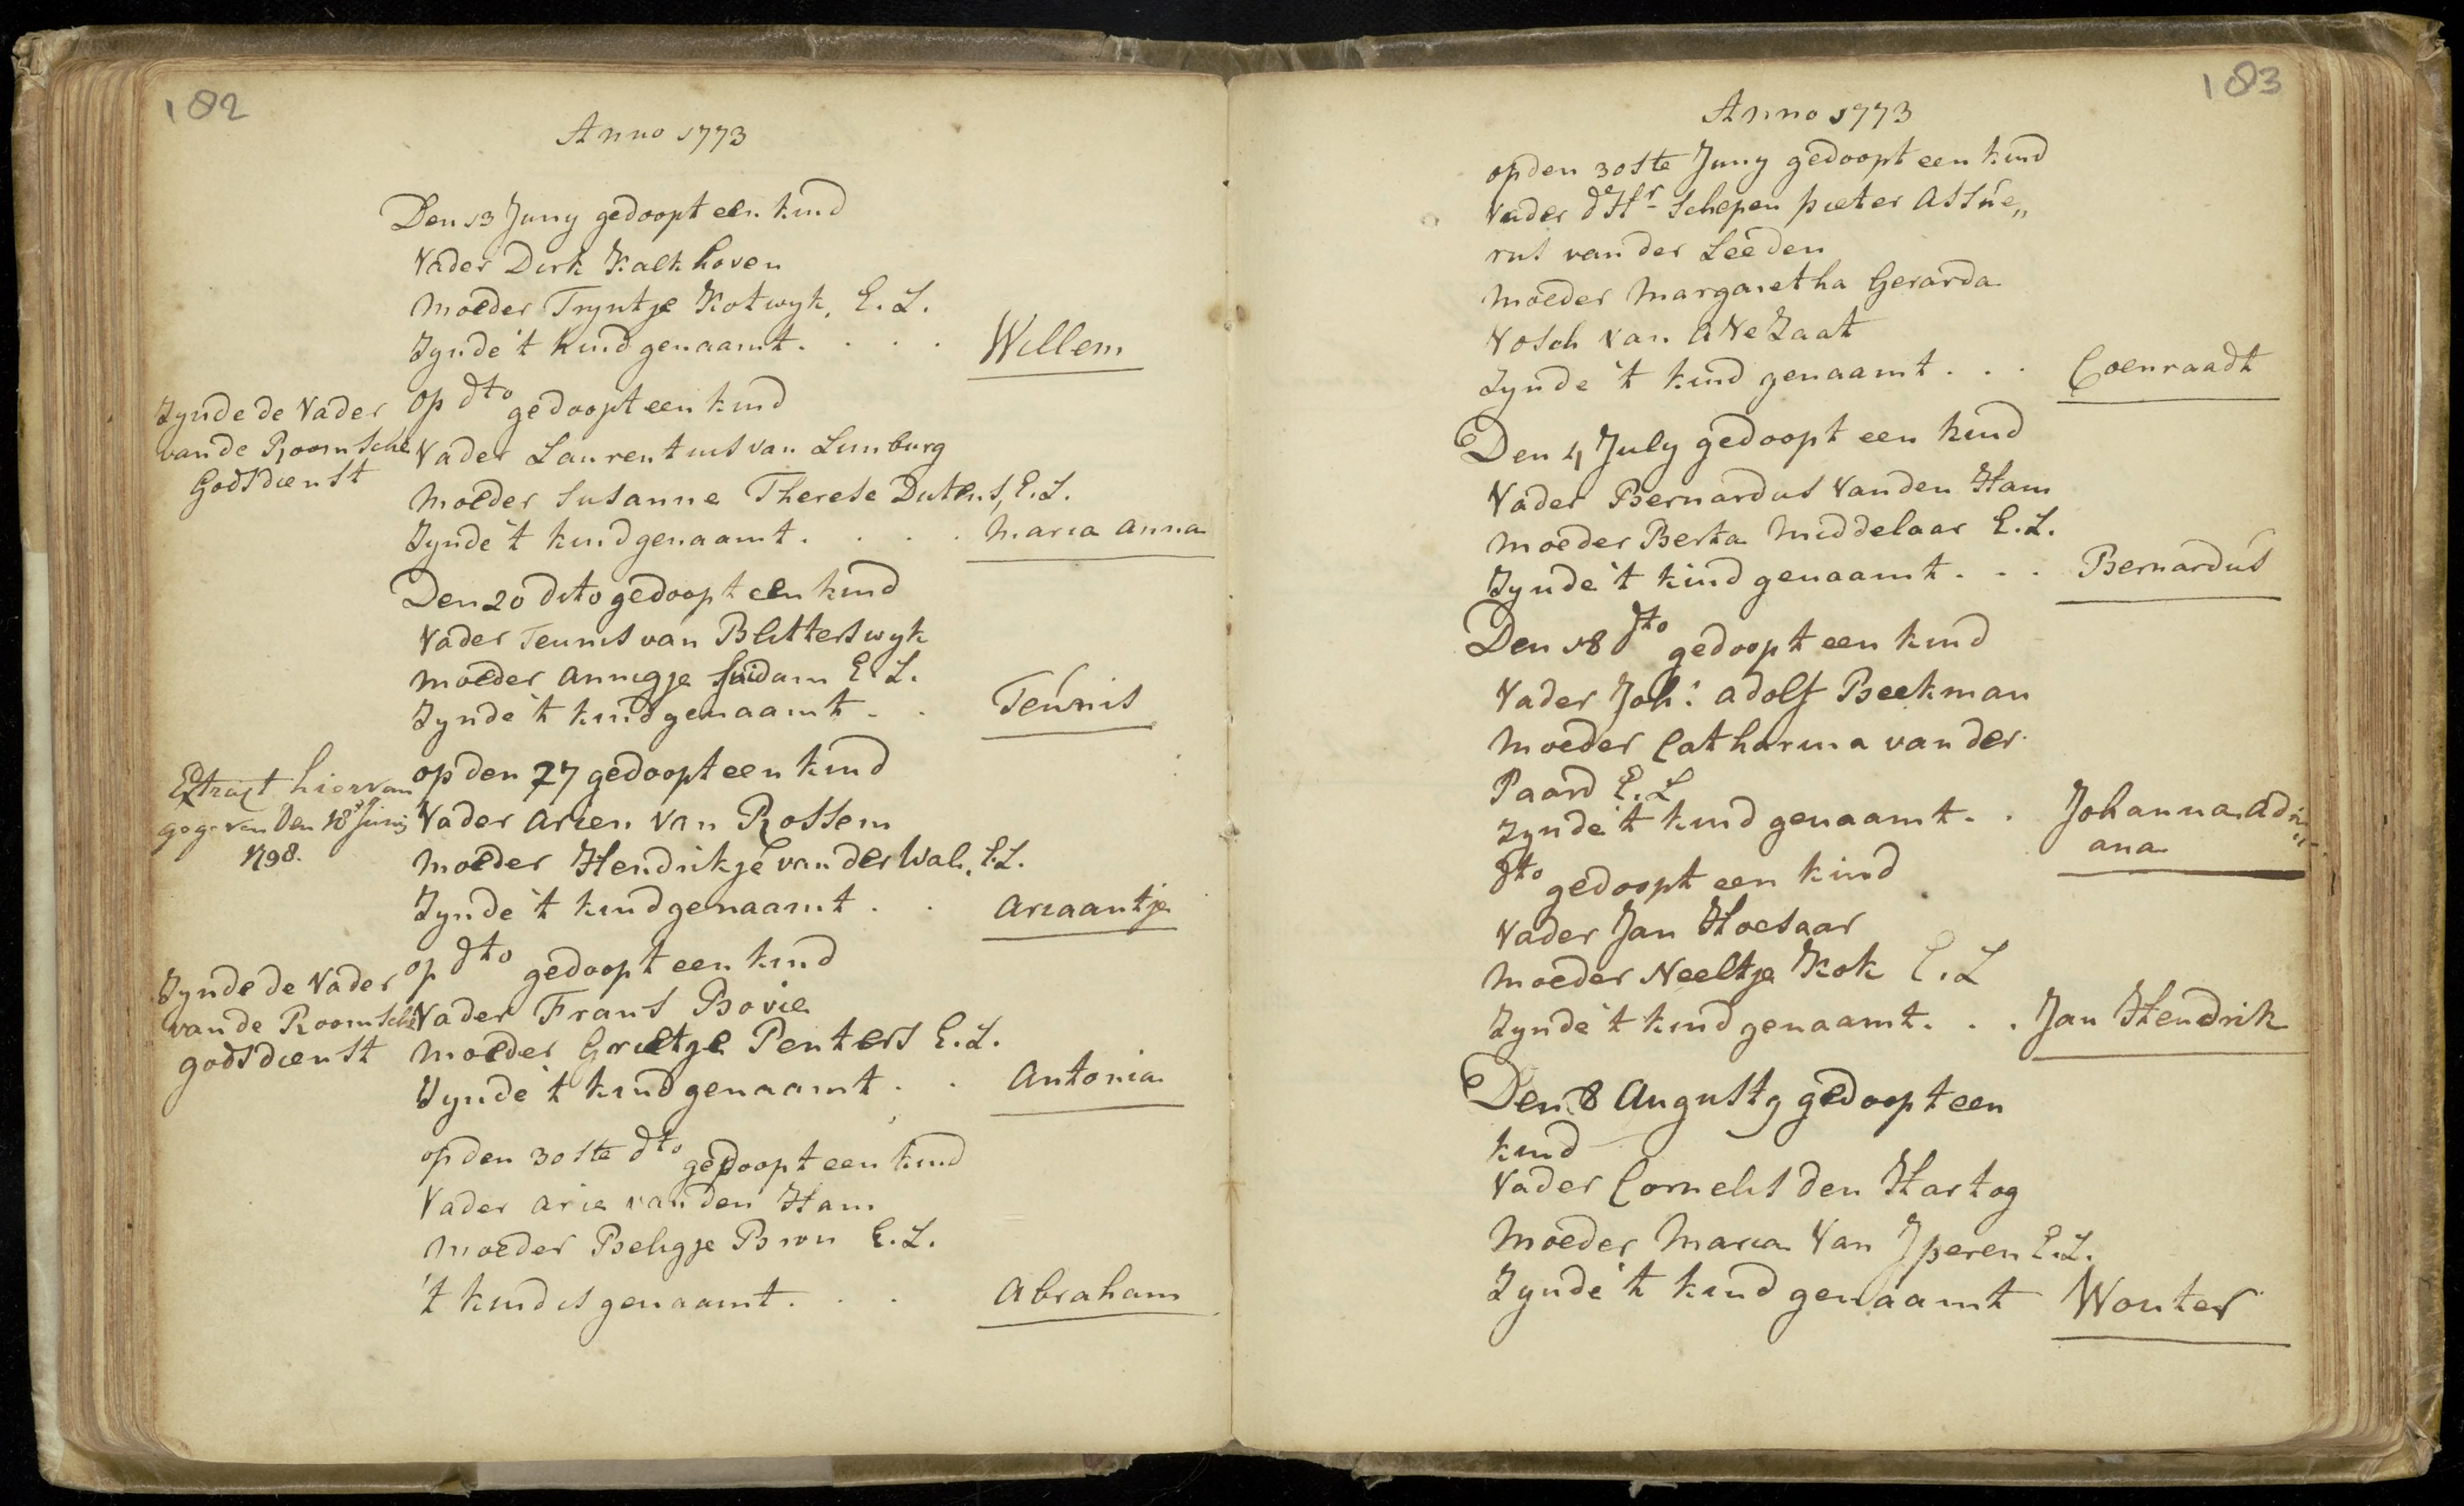 182
Anno 1773
Den 13 Juny gedoopt een kind
Vader Dirk Kalkhoven
Moeder Tryntje Kotwyk, E. L.
Zynde 't kind genaamt . . . . Willem
Zynde de Vader
vande Roomsche
Godsdienst
op dto gedoopt een kind
Vader Laurentius van Limburg
Moeder Susanne Therese Dutens, E. L.
Zynde 't kind genaamt . . . . Maria Anna
Den 20 dito gedoopt een kind
Vader Teunis van Blitterswyk
Moeder Annigje Suidam E. L.
Zynde 't kind genaamt . . Teunis
Extract hiervan
gegeven den 18 Junij
1798.
op den 27 gedoopt een kind
Vader Arien van Rossem
Moeder Hendrikje van der Wal, E. L.
Zynde 't kind genaamt . . Ariaantje
Zynde de Vader
van de Roomsche
godsdienst
op dto gedoopt een kind
Vader Frans Bovie
Moeder Grietje Penters E. L.
Zynde 't kind genaamt . . Antonia
op den 30ste dto gedoopt een kind
Vader Arie van den Ham
Moeder Beligje Bron E. L.
't kind is genaamt . . . Abraham
183
Anno 1773
op den 30ste Juny gedoopt een kind
Vader d Hr Schepen Pieter Assue„
rus van der Leeden
Moeder Margaretha Gerarda
Vosch van Avezaat
Zynde 't kind genaamt . . . Coenraadt
Den 4 July gedoopt een kind
Vader Bernardus van den Ham
Moeder Berta Middelaar E. L.
Zynde 't kind genaamt . . . Bernardus
Den 18 dto gedoopt een kind
Vader Joh: Adolf Beekman
Moeder Catharina van der
Paard E. L
Zynde 't kind genaamt . . Johanna Adri„
ana
dto gedoopt een kind
Vader Jan Hoesaar
Moeder Neeltje Kok E. L
Zynde 't kind genaamt . . . Jan Hendrik
Den 8 Augusty gedoopt een
kind
Vader Cornelis den Hartog
Moeder Maria van Iperen E. L.
Zynde 't kind genaamt Wouter